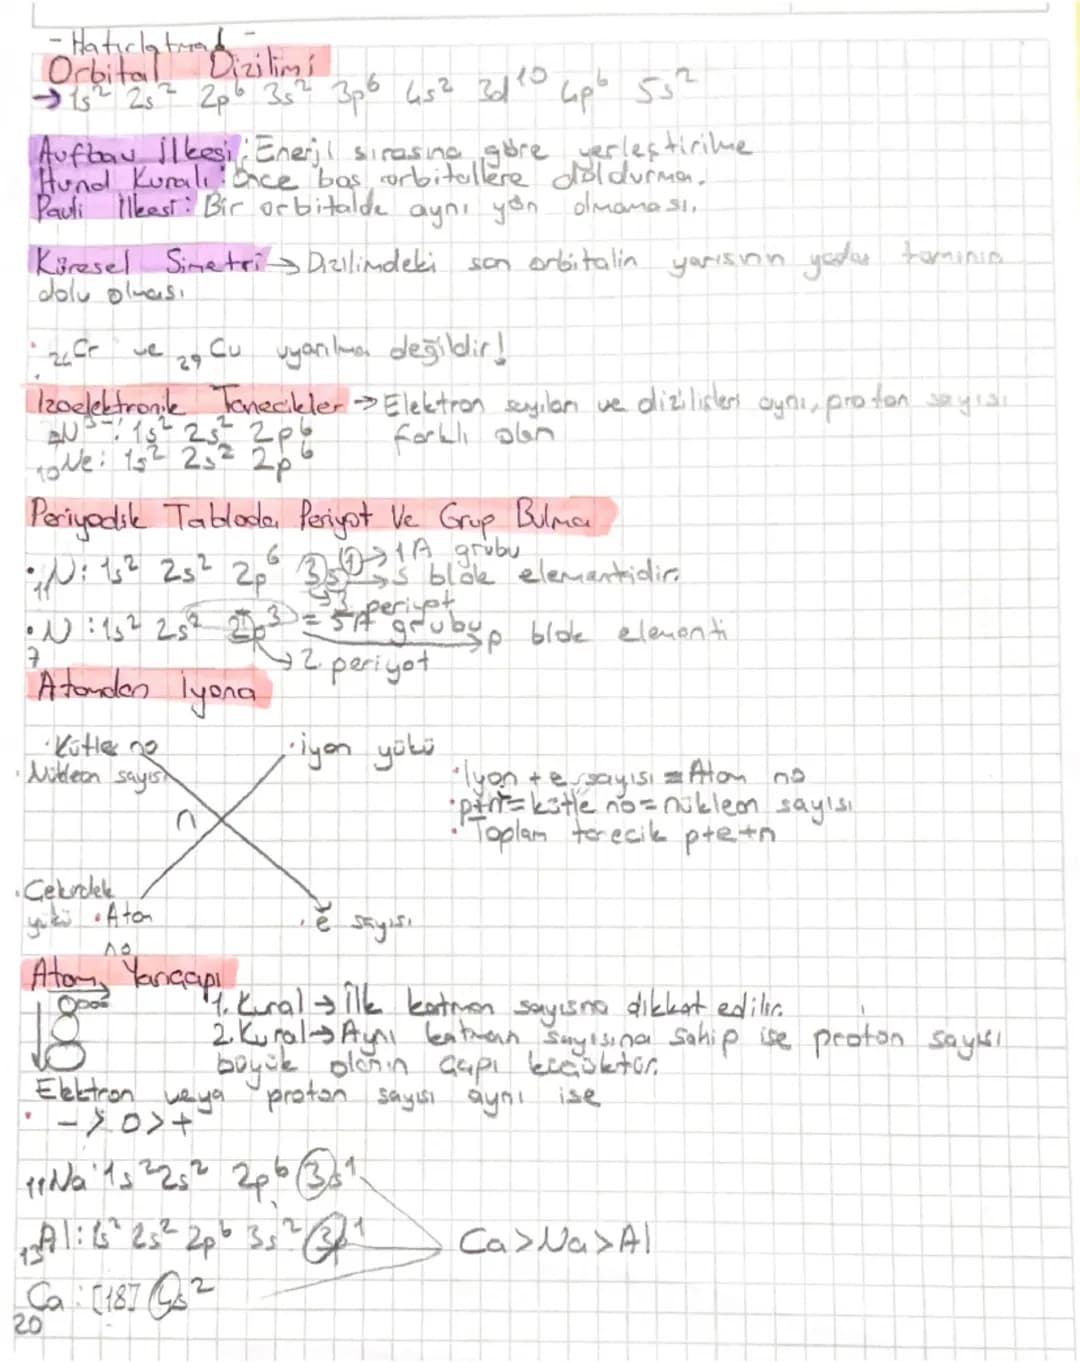 - Hatırlatma -
Orbital Dizilimi
→ 1s² 2s² 2p⁶ 3s² 3p⁶ 4s² 3d¹⁰ 4p⁶ 5s²
Aufbau İlkesi: Enerji sırasına göre yerleştirilme
Hund Kuralı: Önce boş orbitallere doldurma.
Pauli İlkesi: Bir orbitalde aynı yön olmaması.
Küresel Simetri → Dizilimdeki son orbitalin yarısının yada tamının
dolu olması
• ₂₄Cr ve ₂₉Cu uyarılma değildir!
İzoelektronik Tanecikler → Elektron sayıları ve dizilişleri aynı, proton sayısı
₇N³⁻: 1s² 2s² 2p⁶ farklı olan
₁₀Ne: 1s² 2s² 2p⁶
Periyodik Tabloda Periyot Ve Grup Bulma
• ₁₁N: 1s² 2s² 2p⁶ 3s¹ → 1A grubu
→ s blok elementidir.
→ 3. periyot
• ₇N: 1s² 2s² 2p³ = 5A grubu → p blok elementi
→ 2. periyot
Atomdan İyona
• Kütle no • iyon yükü
• Nükleon sayısı
• İyon + e sayısı = Atom no
• p+n = kütle no = nükleon sayısı
n
• Toplam tanecik p+e+n
• Çekirdek
yükü • Atom
no
• e⁻ sayısı
Atom Yarıçapı
1. Kural → İlk katman sayısına dikkat edilir.
2. Kural → Aynı katman sayısına sahip ise proton sayısı
büyük olanın çapı küçüktür.
Elektron veya proton sayısı aynı ise
• - > 0 > +
₁₁Na: 1s² 2s² 2p⁶ 3s¹
₁₃Al: 1s² 2s² 2p⁶ 3s² 3p¹ Ca > Na > Al
₂₀Ca: [18] 4s²